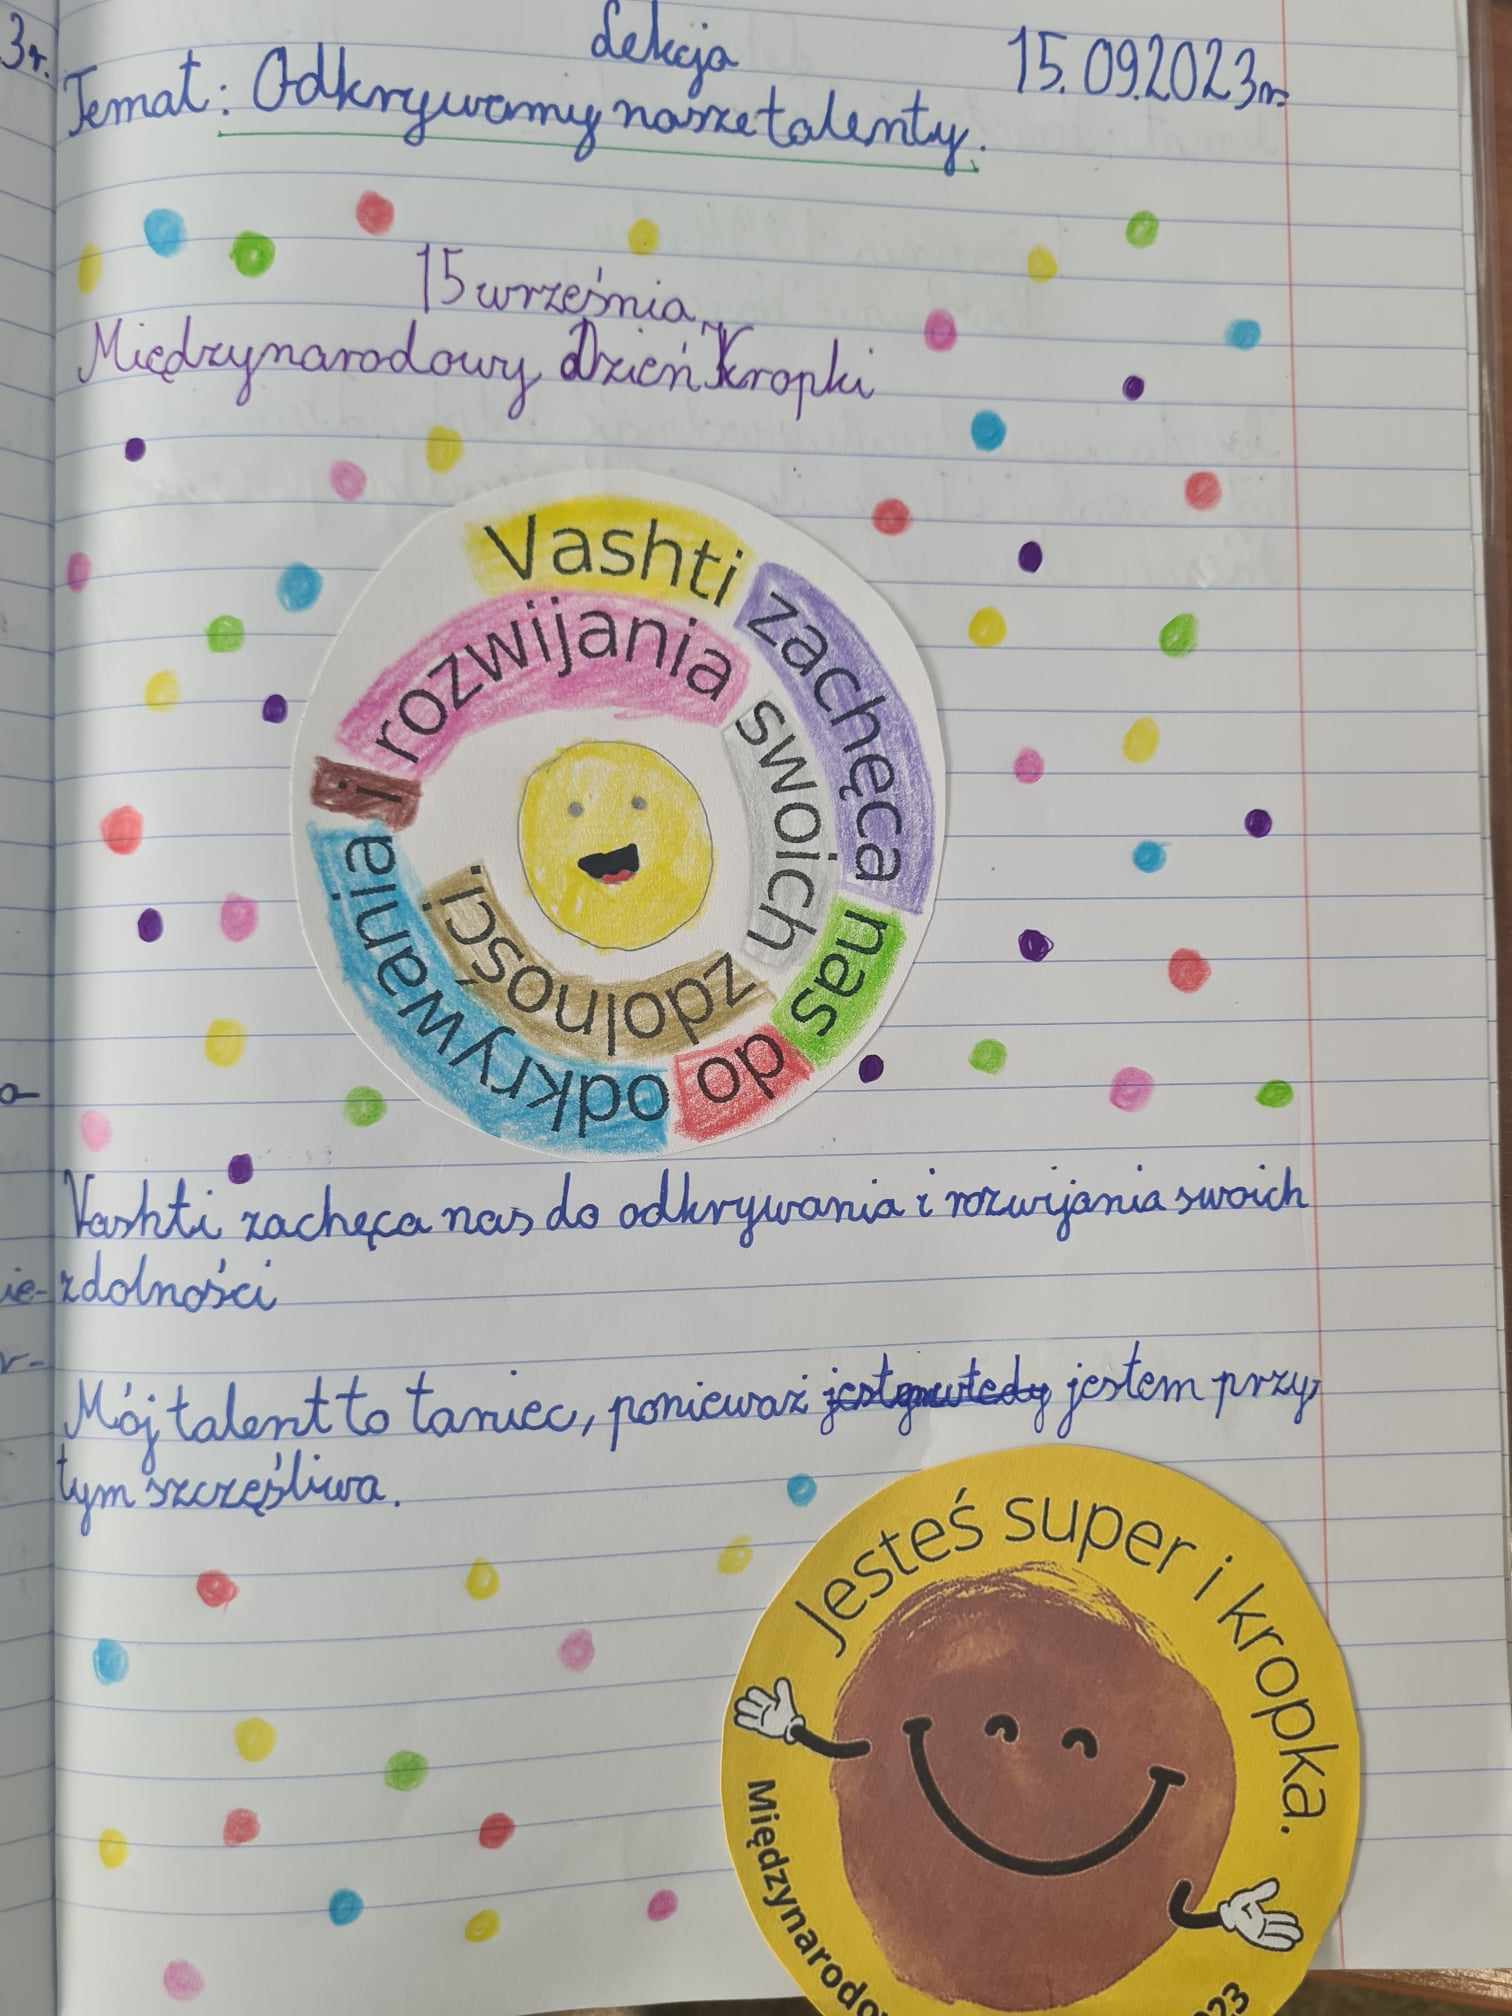 3r.
Lekcja 15.09.2023r.
Temat: Odkrywamy nasze talenty.
15 września
Międzynarodowy Dzień Kropki
Vashti zachęca nas do odkrywania i rozwijania swoich zdolności.
Vashti zachęca nas do odkrywania i rozwijania swoich
zdolności
Mój talent to taniec, ponieważ jestem przy
tym szczęśliwa.
Jesteś super i kropka.